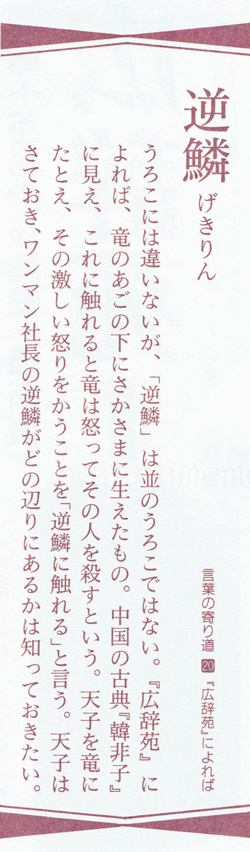 逆鱗 げきりん
言葉の寄り道 20 『広辞苑』によれば
うろこには違いないが、「逆鱗」は並のうろこではない。『広辞苑』に
よれば、竜のあごの下にさかさまに生えたもの。中国の古典『韓非子』
に見え、これに触れると竜は怒ってその人を殺すという。天子を竜に
たとえ、その激しい怒りをかうことを「逆鱗に触れる」と言う。天子は
さておき、ワンマン社長の逆鱗がどの辺りにあるかは知っておきたい。